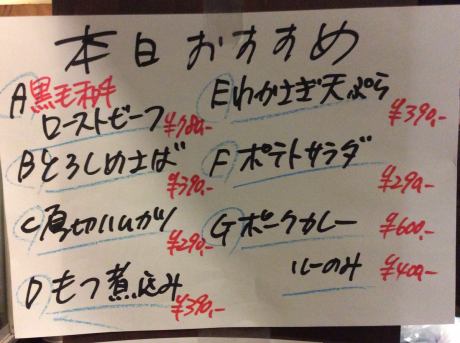 本日おすすめ
A黒毛和牛
ローストビーフ ¥780.-
Bとろしめさば
¥390.-
C厚切ハムカツ
¥290.-
Dもつ煮込み
¥390.-
Eわかさぎ天ぷら
¥390.-
Fポテトサラダ
¥290.-
Gポークカレー ¥600.-
ルーのみ ¥400.-